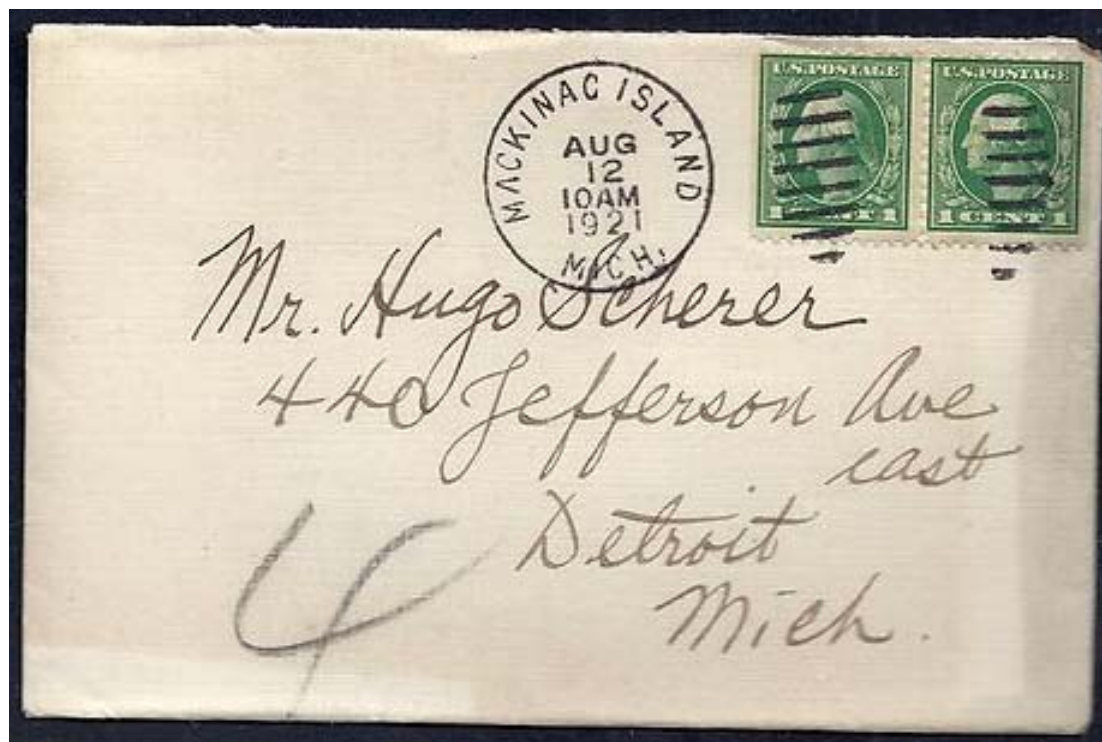 MACKINAC ISLAND
AUG
12
10AM
1921
MICH.
U.S. POSTAGE
1 CENT 1
U.S. POSTAGE
1 CENT 1
Mr. Hugo Scherer
440 Jefferson Ave
east
Detroit
Mich.
4